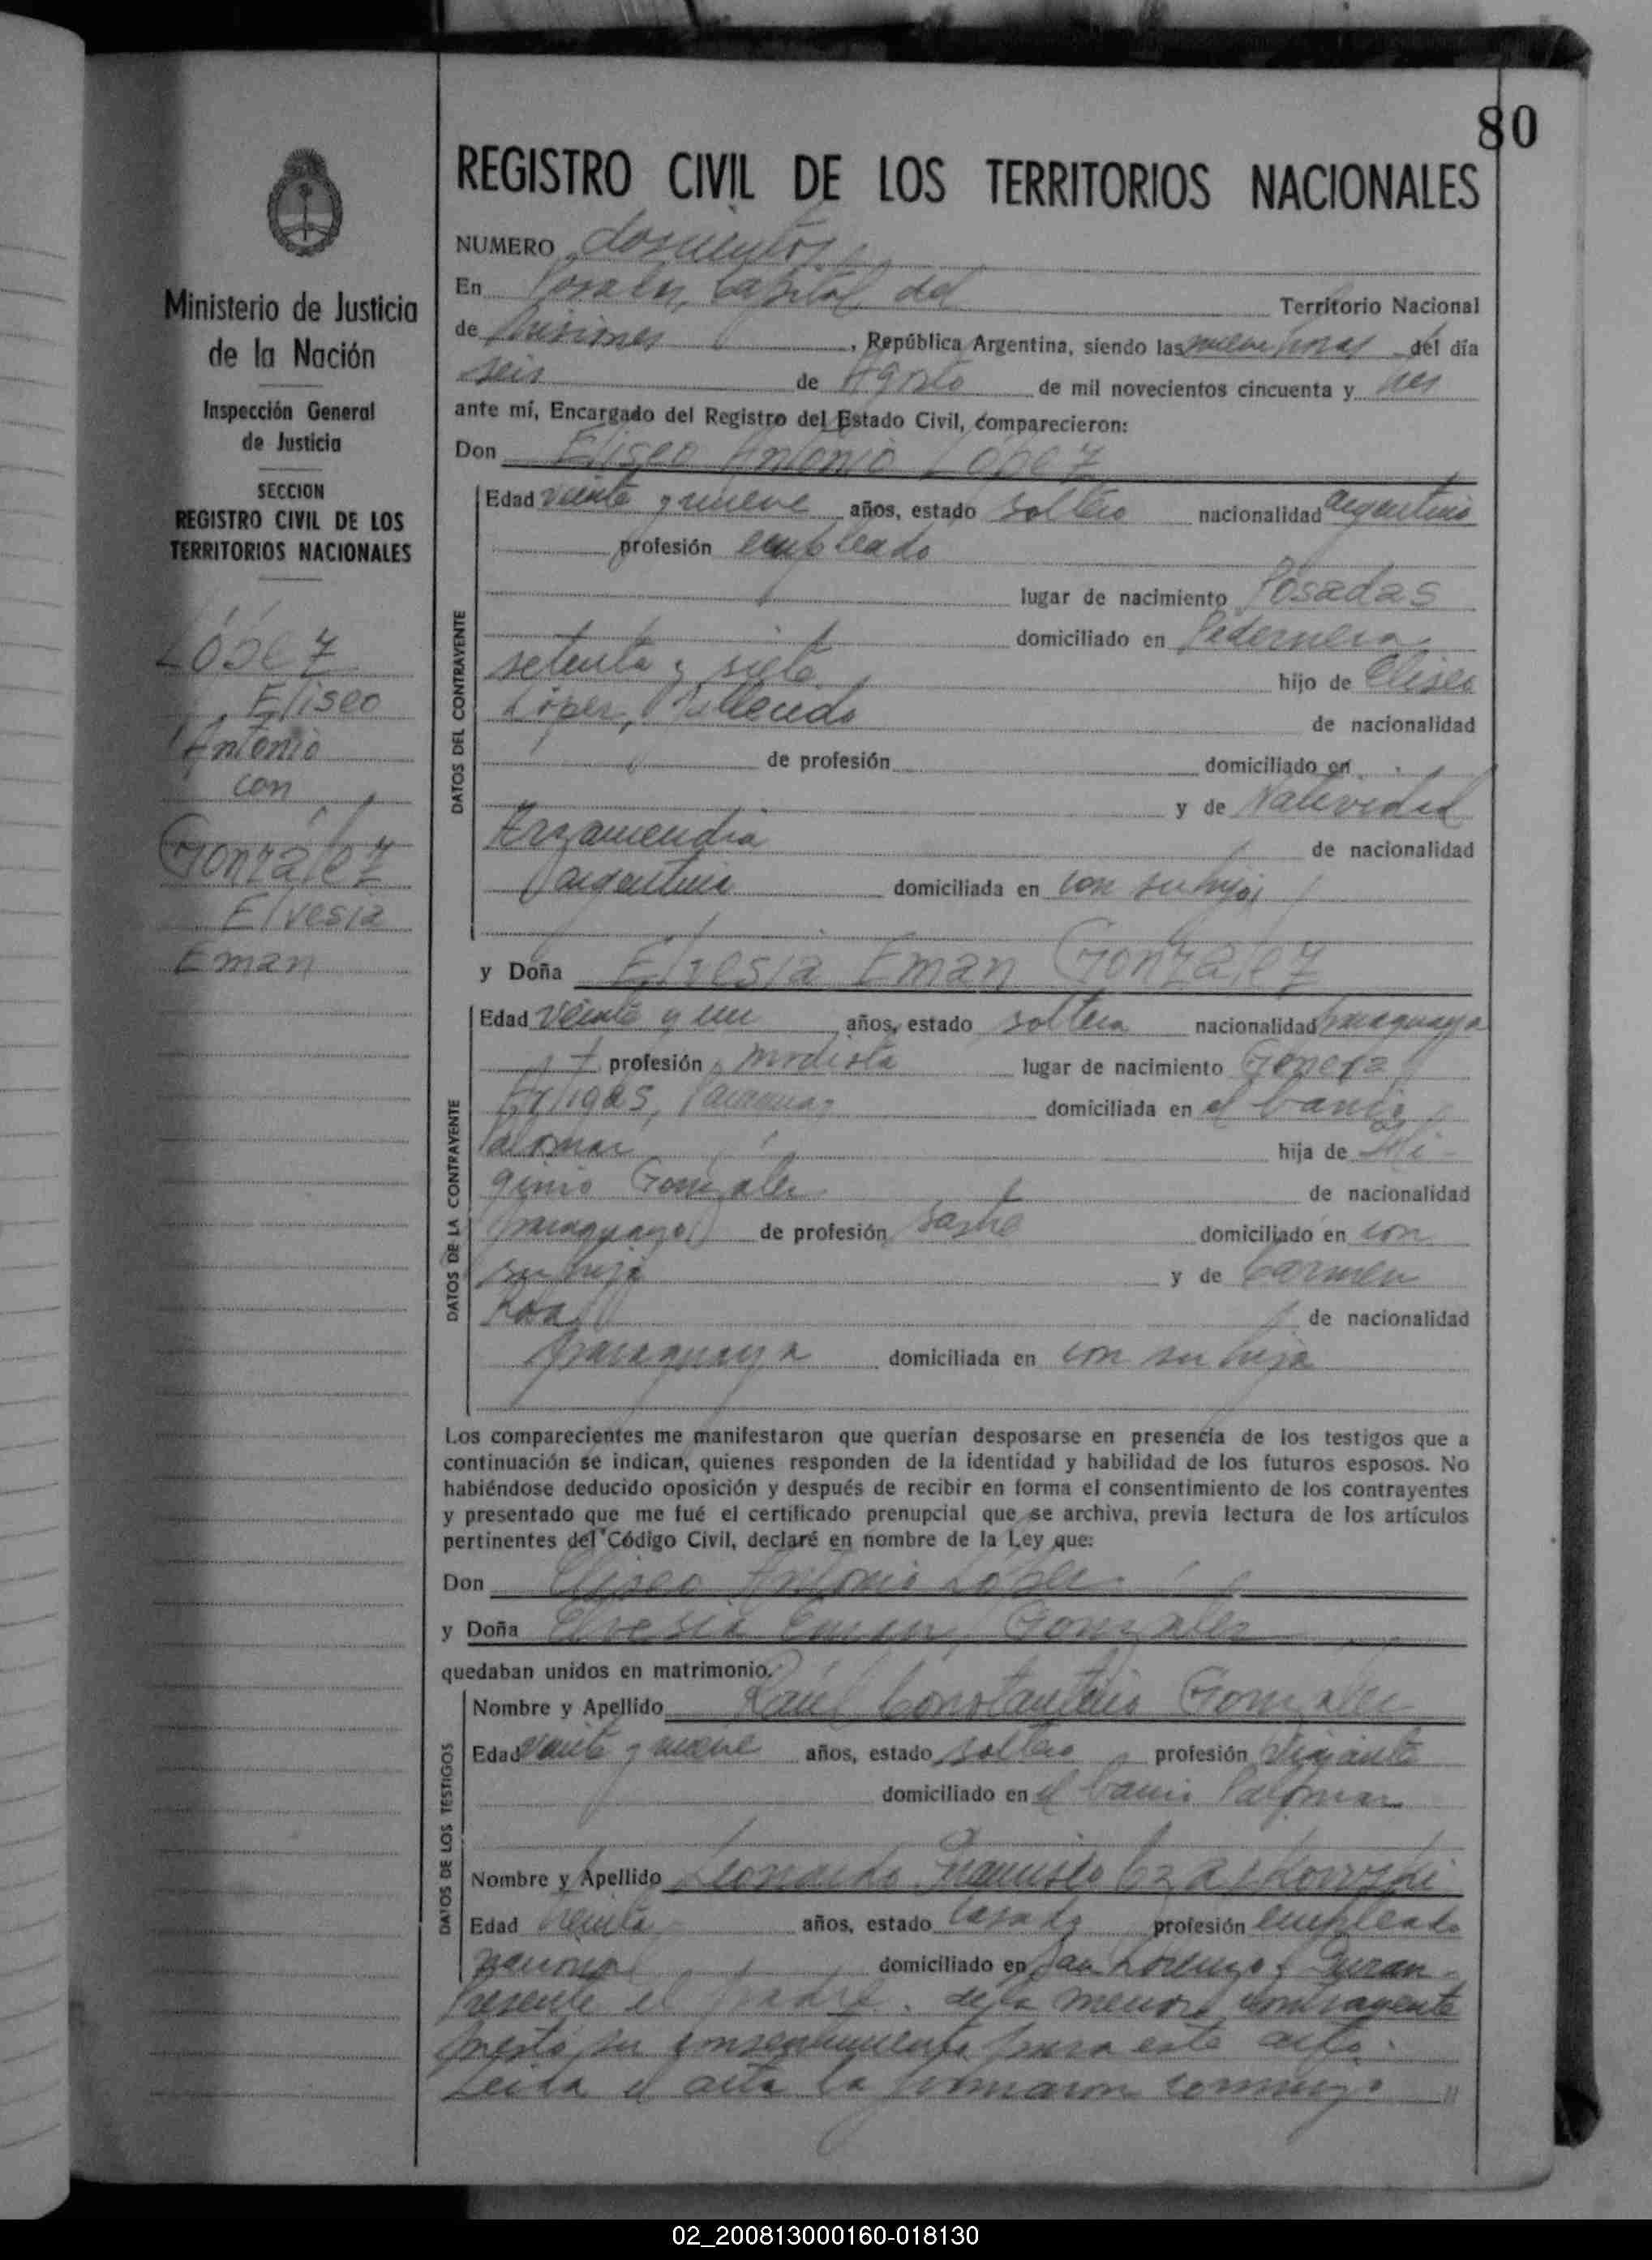 80
REGISTRO CIVIL DE LOS TERRITORIOS NACIONALES
Ministerio de Justicia
de la Nación
Inspección General
de Justicia
SECCION
REGISTRO CIVIL DE LOS
TERRITORIOS NACIONALES
López
Eliseo
Antonio
con
González
Elvesia
Eman
NUMERO doscientos
En Posadas, Capital del Territorio Nacional
de Misiones, República Argentina, siendo las nueve horas del día
seis de Agosto de mil novecientos cincuenta y tres
ante mí, Encargado del Registro del Estado Civil, comparecieron:
Don Eliseo Antonio López
DATOS DEL CONTRAYENTE
Edad veinte y nueve años, estado soltero nacionalidad argentino
profesión empleado
lugar de nacimiento Posadas
domiciliado en Pedernera
setenta y siete hijo de Eliseo
López, fallecido de nacionalidad
de profesión domiciliado en
y de Natividad
Arzamendia de nacionalidad
argentina domiciliada en con su hijo
y Doña Elvesia Eman González
DATOS DE LA CONTRAYENTE
Edad veinte y un años, estado soltera nacionalidad paraguaya
profesión modista lugar de nacimiento General
Artigas, Paraguay domiciliada en el barrio
Palomar hija de Hi-
ginio González de nacionalidad
paraguayo de profesión sastre domiciliado en con
su hija y de Carmen
Rosa de nacionalidad
paraguaya domiciliada en con su hija
Los comparecientes me manifestaron que querían desposarse en presencia de los testigos que a
continuación se indican, quienes responden de la identidad y habilidad de los futuros esposos. No
habiéndose deducido oposición y después de recibir en forma el consentimiento de los contrayentes
y presentado que me fué el certificado prenupcial que se archiva, previa lectura de los artículos
pertinentes del Código Civil, declaré en nombre de la Ley que:
Don Eliseo Antonio López
y Doña Elvesia Eman González
quedaban unidos en matrimonio.
DATOS DE LOS TESTIGOS
Nombre y Apellido Raúl Constantino González
Edad veinte y nueve años, estado soltero profesión
domiciliado en el barrio Palomar
Nombre y Apellido Leonardo Francisco
Edad treinta años, estado casado profesión empleado
nacional domiciliado en San Lorenzo
Presente el padre de la menor contrayente
prestó su consentimiento para este acto.
Leída el acta la firmaron conmigo
02_200813000160-018130